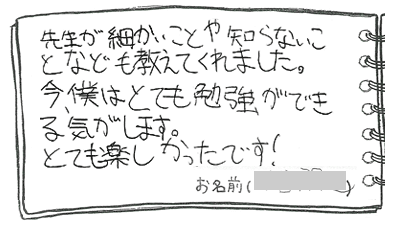 先生が細かいことや知らないこ
となども教えてくれました。
今、僕はとても勉強ができ
る気がします。
とても楽しかったです!
お名前(